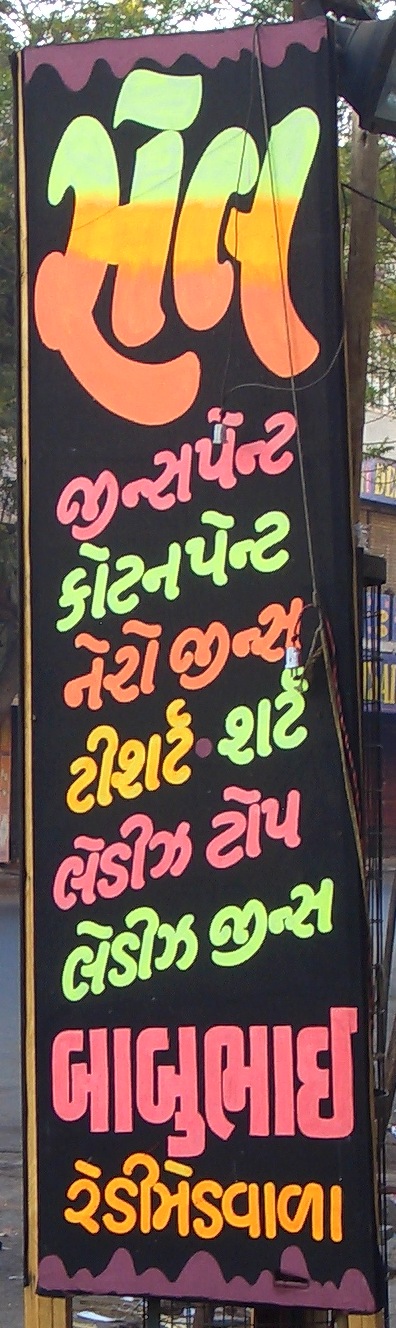 સેલ
જીન્સપેન્ટ
કોટનપેન્ટ
નેરો જીન્સ
ટીશર્ટ • શર્ટ
લેડીઝ ટોપ
લેડીઝ જીન્સ
બાબુભાઈ
રેડીમેડવાળા